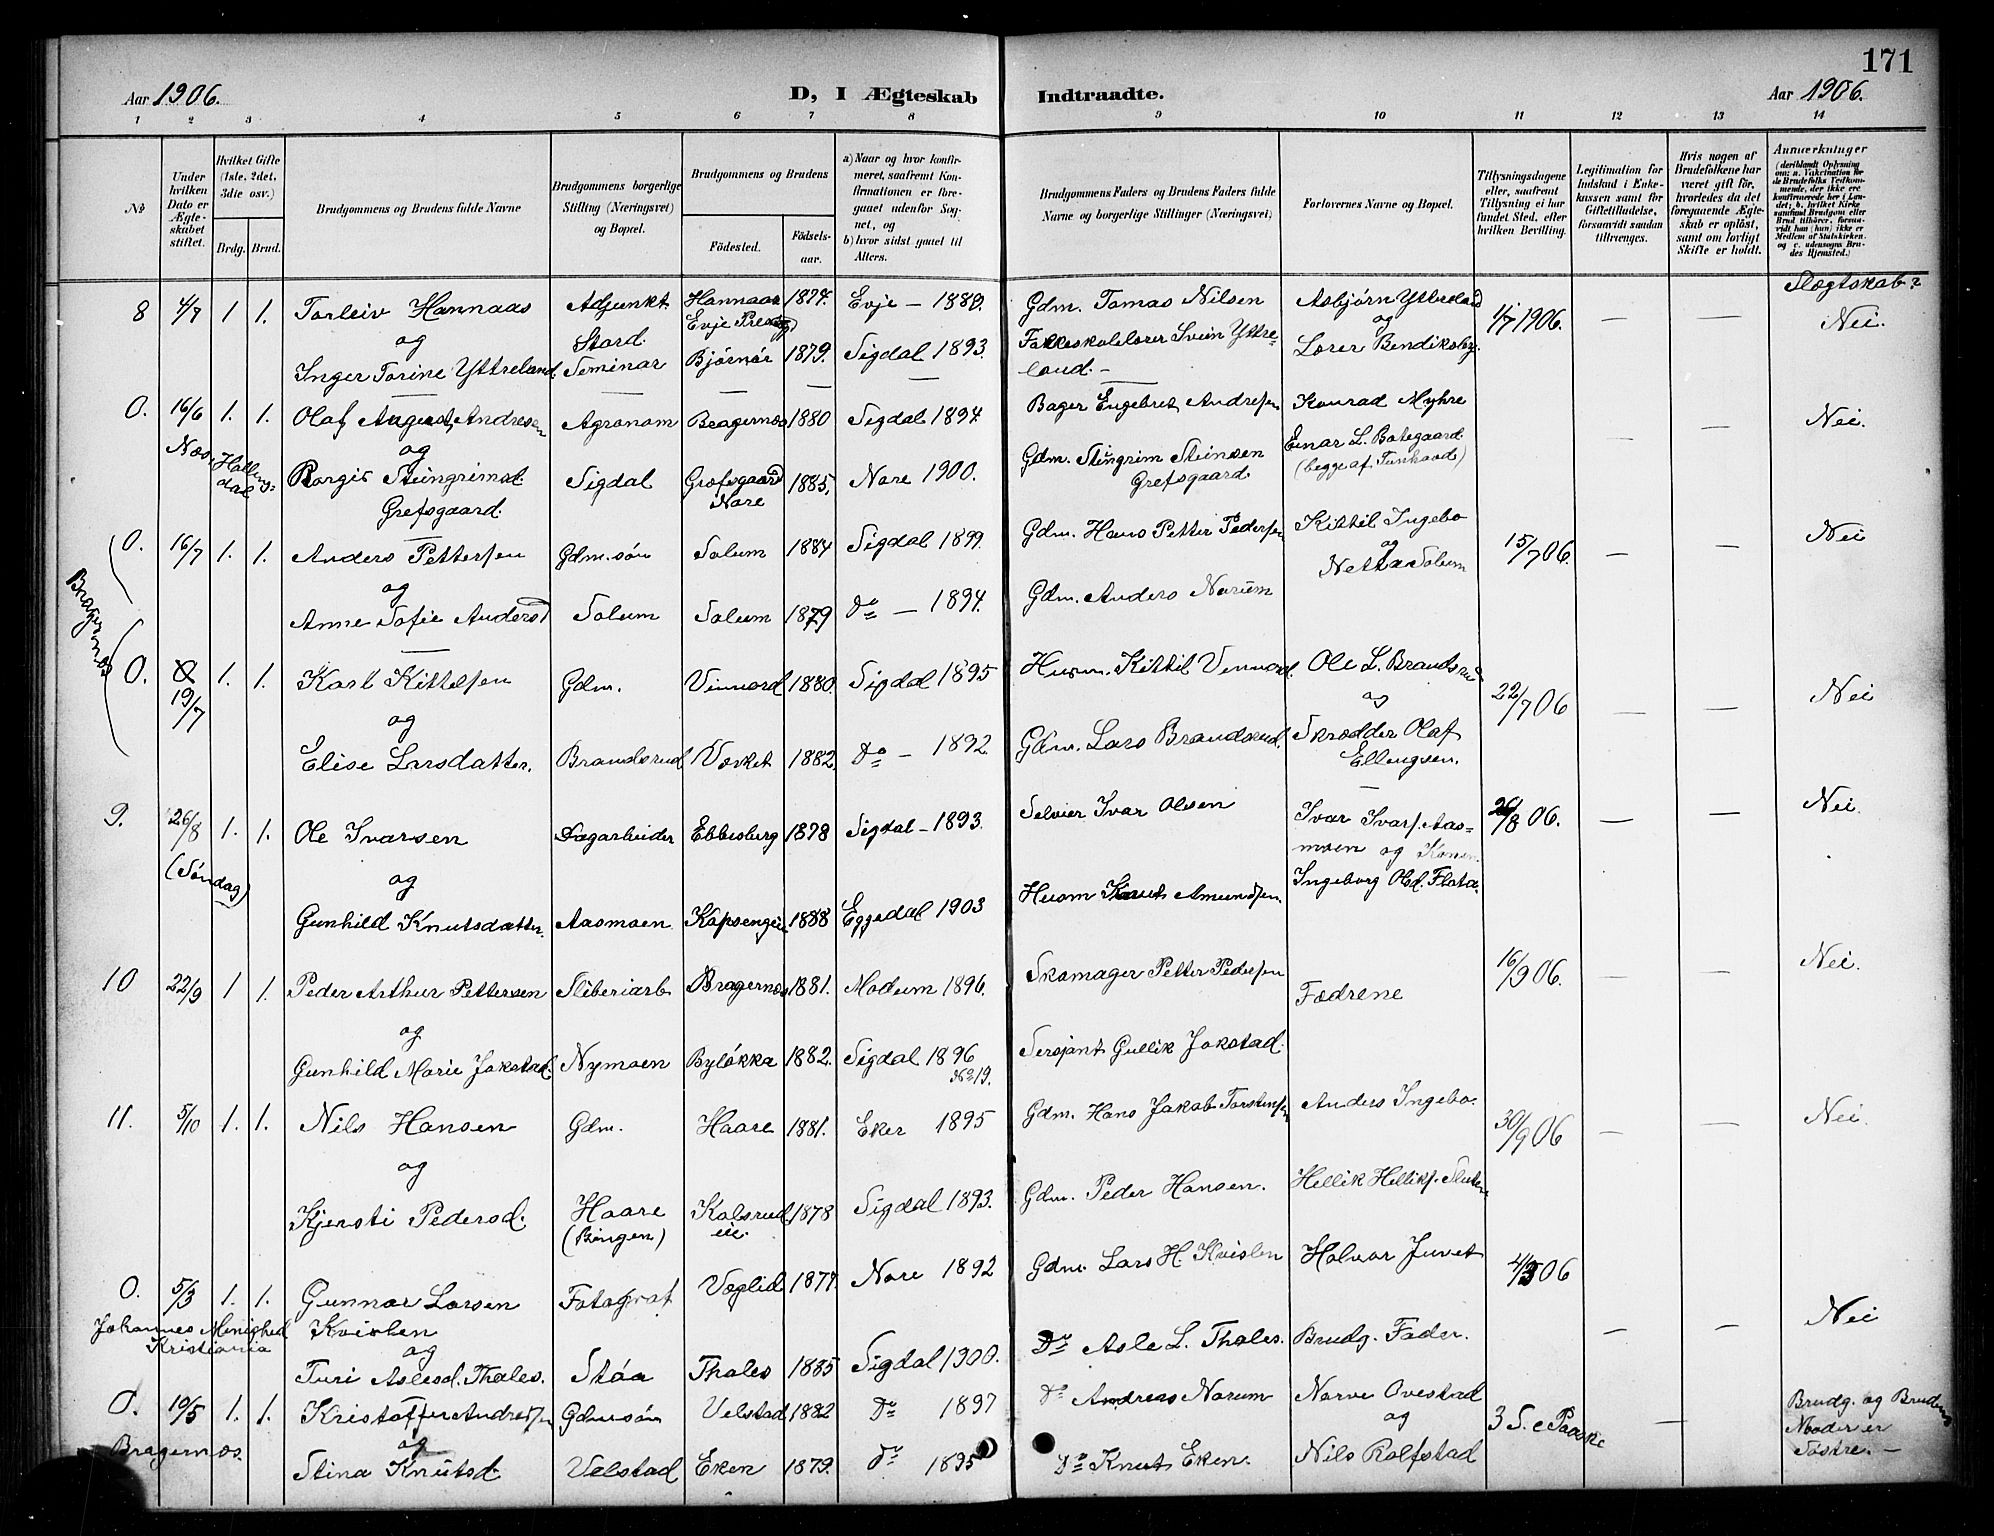 171
Aar 1906.
D, I Ægteskab Indtraadte.
Aar 1906.
1 2 3 4 5 6 7 8 9 10 11 12 13 14
No
Under hvilken Dato er Ægteskabet stiftet.
Hvilket Gifte (1ste, 2det, 3die osv.)
Brdg. Brud.
Brudgommens og Brudens fulde Navne
Brudgommens borgerlige Stilling (Næringsvei) og Bopæl.
Brudgommens og Brudens
Fødested. Fødselsaar.
a) Naar og hvor konfirmeret, saafremt Konfirmationen er foregaaet udenfor Sognet, og
b) hvor sidst gaaet til Alters.
Brudgommens Faders og Brudens Faders fulde Navne og borgerlige Stillinger (Næringsvei)
Forlovernes Navne og Bopæl.
Tillysningsdagene eller, saafremt Tillysning ei har fundet Sted, efter hvilken Bevilling.
Legitimation for Indskud i Enkekassen samt for Giftetilladelse, forsaavidt saadan tiltrænges.
Hvis nogen af Brudefolkene har været gift før, hvorledes da det foregaaende Ægteskab er opløst, samt om lovligt Skifte er holdt.
Anmærkninger
(deriblandt Oplysning om: a. Vaccination for de Brudefolks Vedkommende, der ikke ere konfirmerede her i Landet; b. hvilket Kirkesamfund Brudgom eller Brud tilhører, forsaavidt han (hun) ikke er Medlem af Statskirken, og c. udensogns Brudes Hjemsted.)
Slægtskab?
8 4/7 1 1. Torleiv Hannaas Adjunkt Hannaas 1874. Evje — 1889. Gdm. Tomas Nilsen Asbjørn Yttreland 1/7 1906. — — Nei.
og Stord Evje Præstegj og
Inger Torine Yttreland. Seminar Bjørnør 1879. Sigdal 1893. Folkeskolelærer Svein Yttreland. — Lærer Bendiksby.
O. 16/6 1. 1. Olaf August Andresen Agronom Bragernæs 1880 Sigdal 1894. Bager Engebret Andresen Konrad Myhre — — Nei.
Næs, Hallingdal og Einar L. Botegaard
Borgis Steingrimsd. Sigdal Græfsgaard 1885. Nore 1900. Gdm. Stingrim Steinsen (begge af Tunhovd)
Grefsgaard. Nore Grefsgaard
O. 16/7 1. 1. Anders Pettersen Gdm. søn Solum 1884 Sigdal 1899. Gdm. Hans Petter Pedersen Kittil Ingebo 15/7 06. — — Nei
Bragernæs og og Netta Solum
Anne Sofie Andersd Solum Solum 1879 Do — 1894. Gdm. Anders Narum
O. 19/7 1. 1. Karl Kittelsen Gdm. Vinnord 1880. Sigdal 1895 Husm. Kittil Vinnord. Ole L. Brandsrud 22/7 06 — — Nei
og og
Elise Larsdatter. Brandsrud Værket 1882. Do — 1892 Gdm. Lars Brandsrud. Skrædder Olaf Ellengsen.
9. 26/8 1. 1. Ole Ivarsen Dagarbeider Ebbesberg 1878 Sigdal — 1893. Selveier Ivar Olsen Ivar Ivars. Aasmoen og Konen 26/8 06. — — Nei
(Søndag) og
Gunhild Knutsdatter. Aasmoen Kopsengen 1888 Eggedal 1903 Husm Knut Amundsen. Ingeborg Olsd. Flata.
10 22/9 1 1. Peder Arthur Pettersen Sliberiarb Bragernæs 1881. Modum 1896. Skomager Petter Pedersen Fædrene 16/9 06. — — Nei.
og
Gunhild Marie Jokstad. Nymoen Byløkka 1882. Sigdal 1896 No 19. Sersjant Gullik Jokstad.
11. 5/10 1. 1. Nils Hansen Gdm. Haare 1881. Eker 1895 Gdm. Hans Jakob Torstensen Anders Ingebo. 30/9 06 — — Nei.
og
Kjersti Pedersd. Haare Kolsrud 1878 Sigdal 1893. Gdm. Peder Hansen. Hellik Helliks.
(Bingen) eie.
O. 5/3 1. 1. Gunnar Larsen Fotograf Væglid 1877. Nore 1892 Gdm. Lars H. Kvislen Halvor Juvet 4/3 06 — — Nei
Johannes Menighed Kristiania Kvislen
og
Turi Aslesd. Tholes. Støa Tholes 1885 Sigdal 1900. Do Asle L. Tholes. Brudg. Fader.
O. 19/5 1. 1. Kristoffer Andresen Gdmsøn Velstad 1882 Do 1897 Do Andreas Narum Narve Ovestad 3 S. e Paaske — Brudg. og Brudens Moder er Søstre. —
Bragernæs. og og
Stina Knutsd. Velstad Eken 1879. Do 1895 Do Knut Eken. Nils Rolfstad